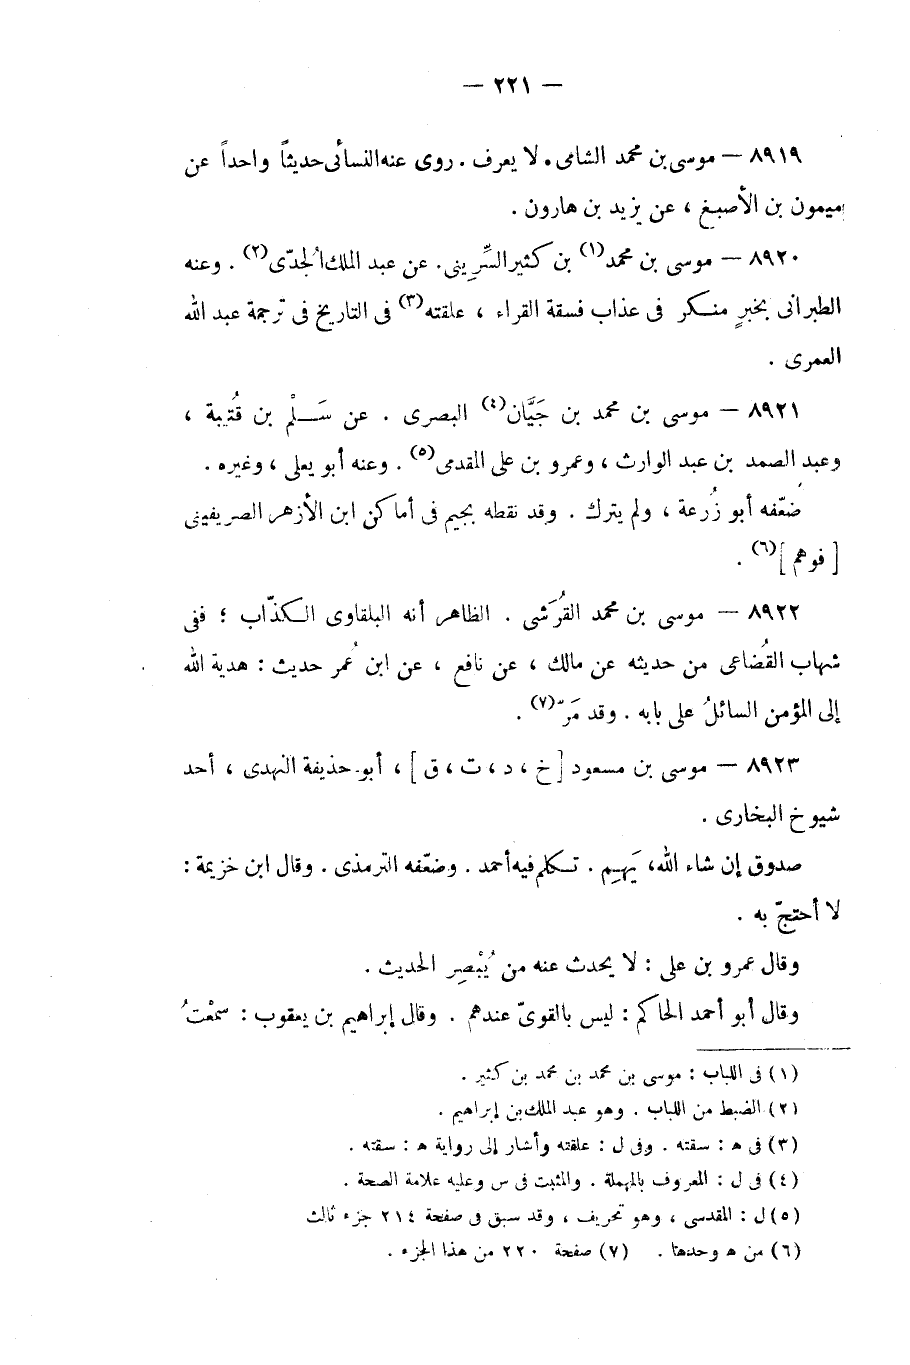 — ٢٢١ —
٨٩١٩ — موسى بن محمد الشامى . لا يعرف . روى عنه النسائى حديثاً واحداً عن
ميمون بن الأصبغ ، عن يزيد بن هارون .
٨٩٢٠ — موسى بن محمد(١) بن كثير السِّرينى . عن عبد الملك الجدّى(٢) . وعنه
الطبرانى بخبرٍ منكر فى عذاب فسقة القراء ، علقته(٣) فى التاريخ فى ترجمة عبد الله
العمرى .
٨٩٢١ — موسى بن محمد بن جَيَّان(٤) البصرى . عن سَلْم بن قُتيبة ،
وعبد الصمد بن عبد الوارث ، وعمرو بن على المقدمى(٥) . وعنه أبو يعلى ، وغيره .
ضعّفه أبو زُرعة ، ولم يترك . وقد نقطه بجيم فى أماكن ابن الأزهر الصريفينى
[ فوهم ](٦) .
٨٩٢٢ — موسى بن محمد القُرَشى . الظاهر أنه البلقاوى الكذّاب ؛ ففى
شهاب القُضاعى من حديثه عن مالك ، عن نافع ، عن ابن عُمر حديث : هدية الله
إلى المؤمن السائلُ على بابه . وقد مَرّ(٧) .
٨٩٢٣ — موسى بن مسعود [ خ ، د ، ت ، ق ] ، أبو حذيفة النهدى ، أحد
شيوخ البخارى .
صدوق إن شاء الله، يَهِم . تكلم فيه أحمد . وضعّفه الترمذى . وقال ابن خزيمة :
لا أحتجّ به .
وقال عمرو بن على : لا يحدث عنه من يُبْصِر الحديث .
وقال أبو أحمد الحاكم : ليس بالقوىّ عندهم . وقال إبراهيم بن يعقوب : سمعْتُ
(١) فى اللباب : موسى بن محمد بن محمد بن كثير .
(٢) الضبط من اللباب . وهو عبد الملك بن إبراهيم .
(٣) فى ﻫ : سقته . وفى ل : علقته وأشار إلى رواية ﻫ : سقته .
(٤) فى ل : المعروف بالمهملة . والمثبت فى س وعليه علامة الصحة .
(٥) ل : المقدسى ، وهو تحريف ، وقد سبق فى صفحة ٢١٤ جزء ثالث
(٦) من ﻫ وحدها . (٧) صفحة ٢٢٠ من هذا الجزء .